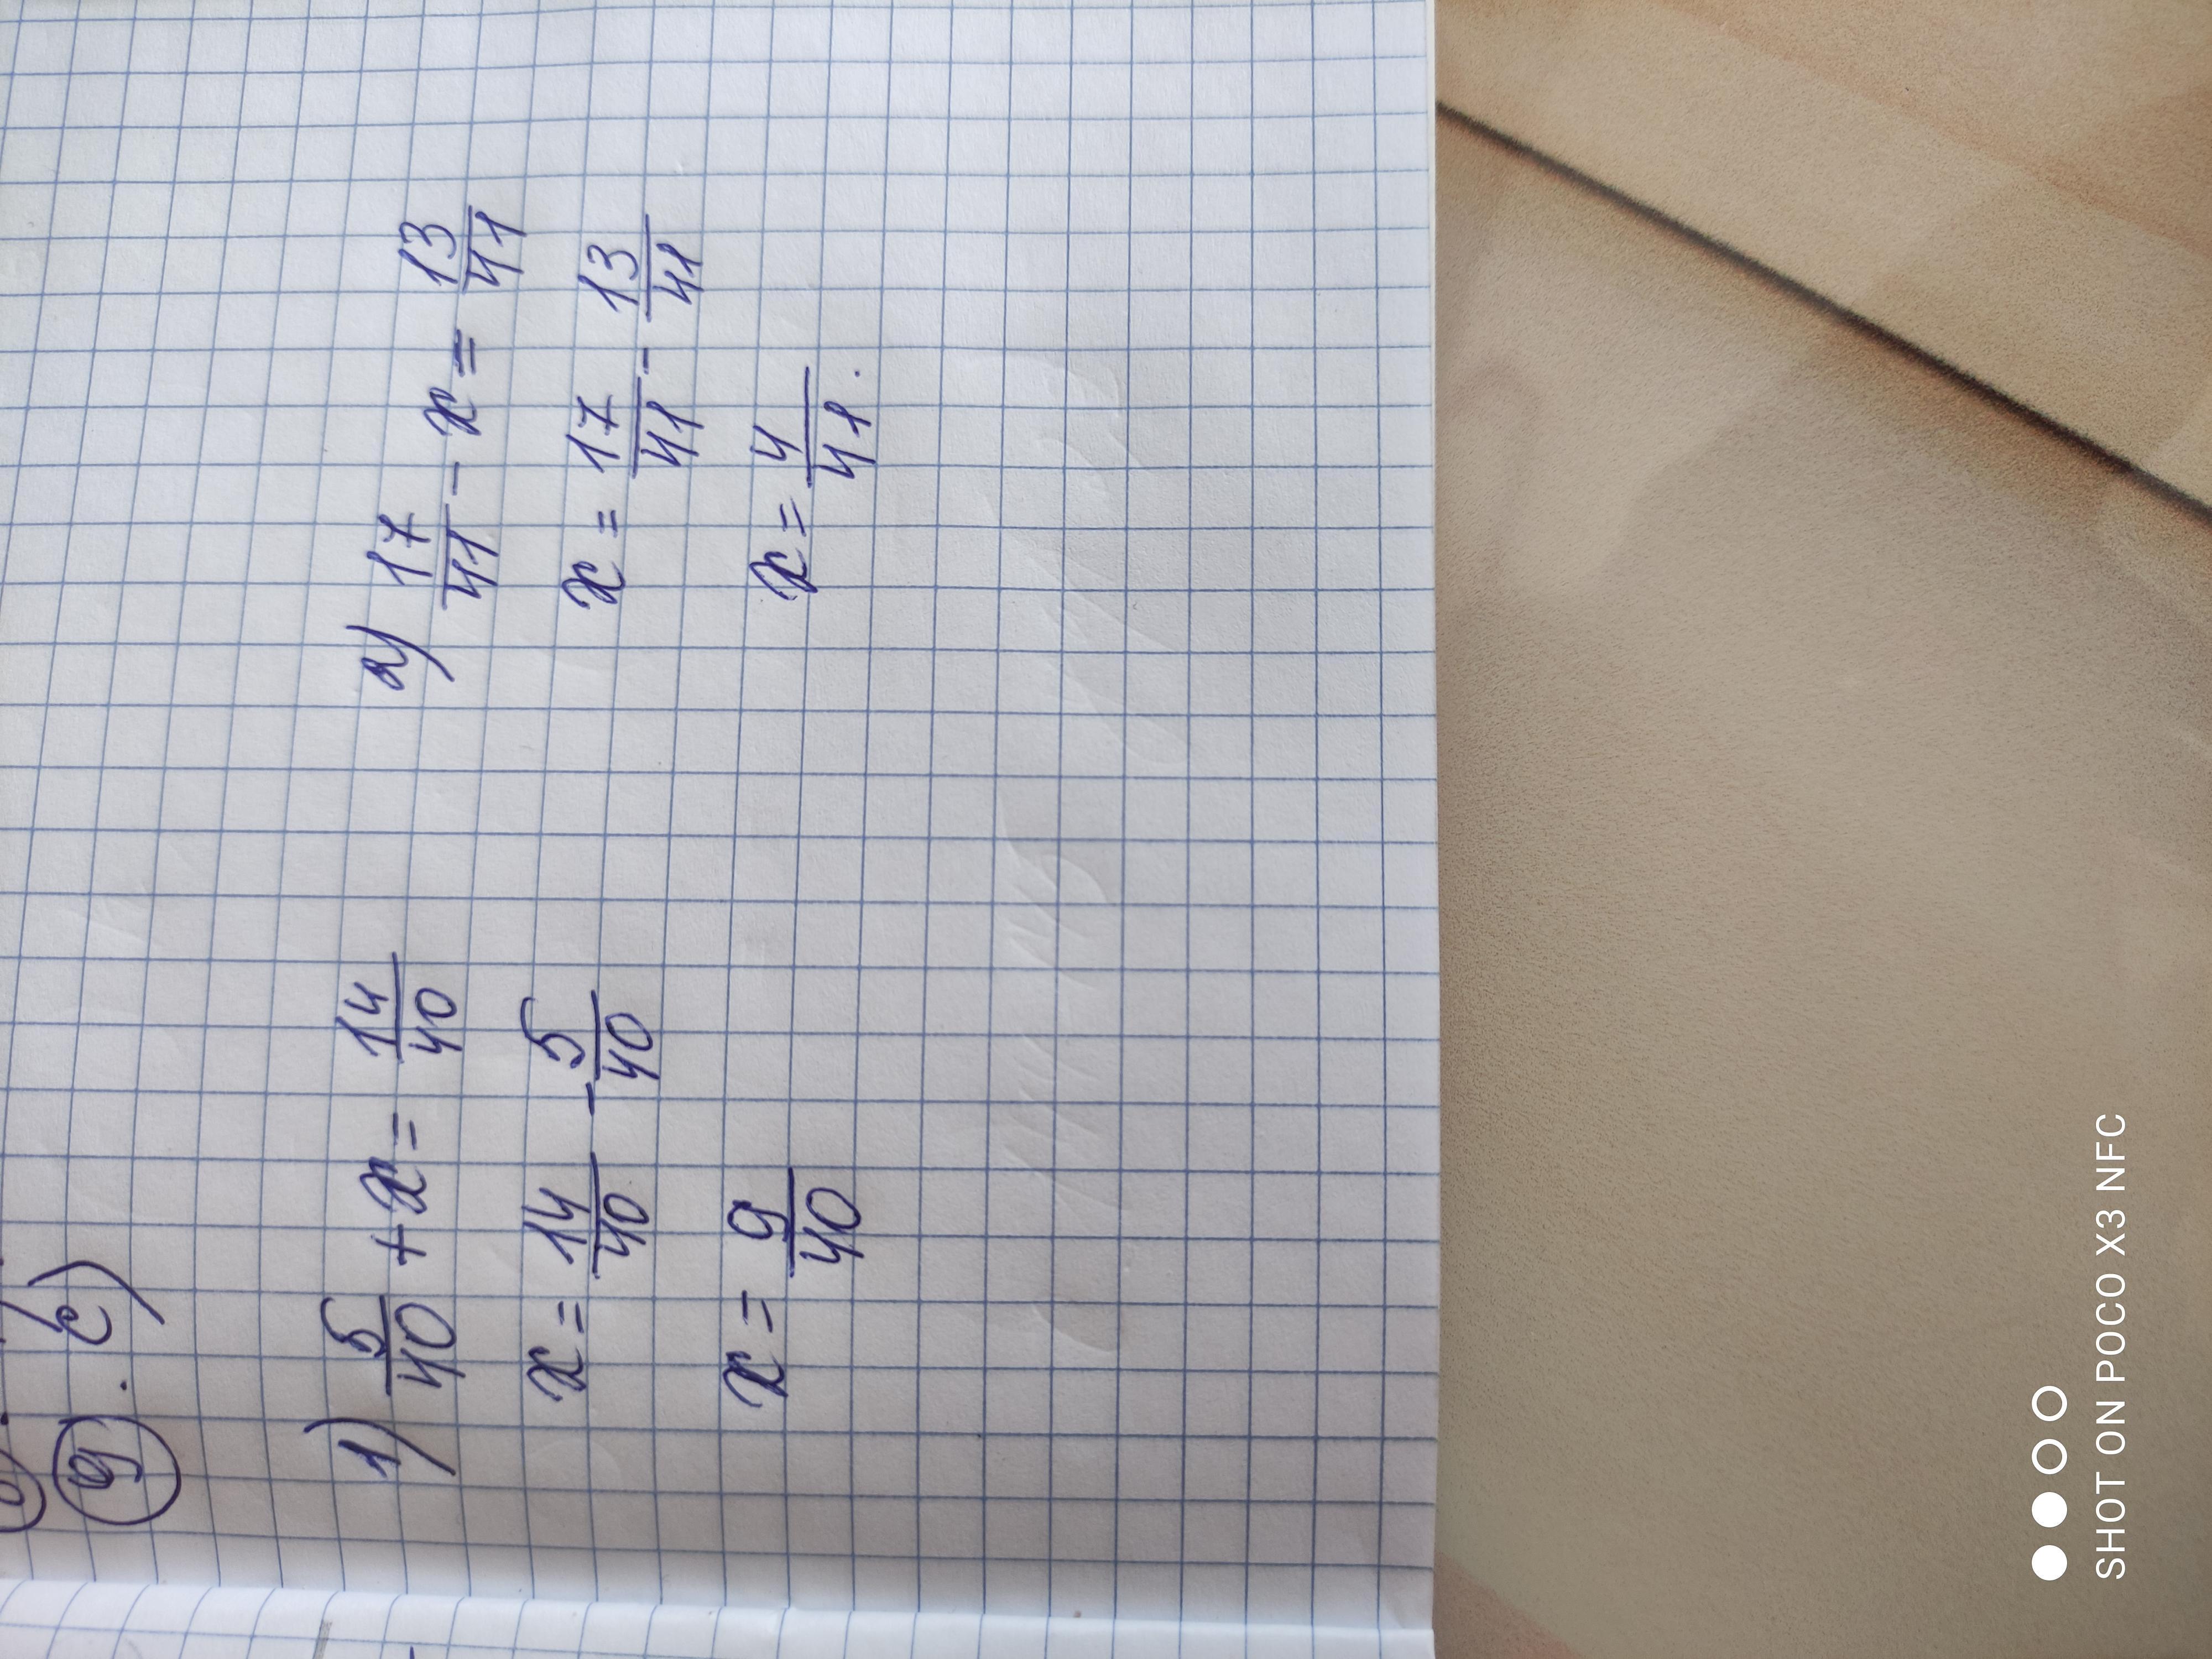 9. c)
1) 5/40 + x = 14/40
x = 14/40 - 5/40
x = 9/40
2) 17/41 - x = 13/41
x = 17/41 - 13/41
x = 4/41.
SHOT ON POCO X3 NFC